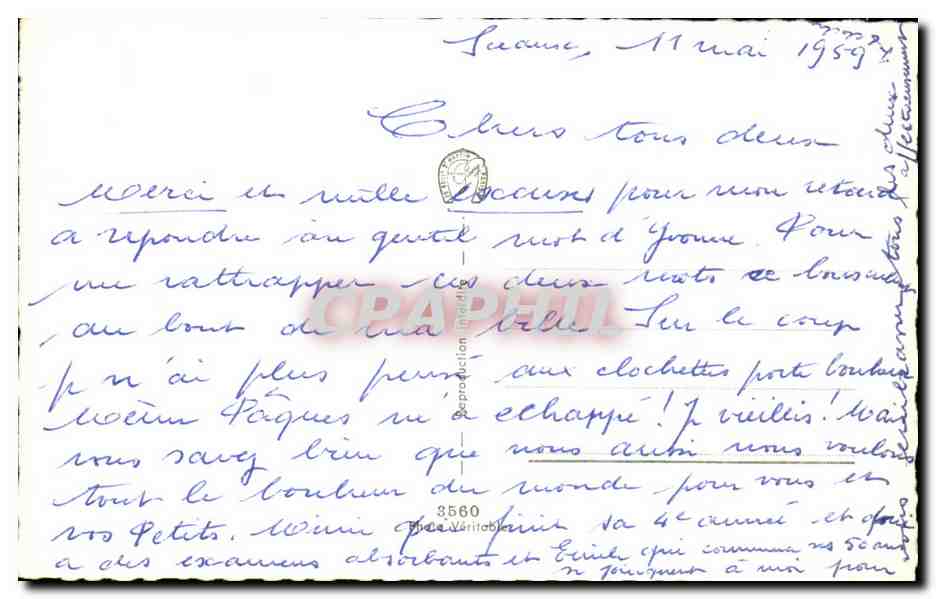 11 mai 1959
Chers tous deux
Merci et mille excuses pour mon retard
a repondre au gentil mot d'Yvonne. Pour
me rattrapper ces deux mots se bouscul
au bout de ma bille. Sur le coup
je n'ai plus pensé aux clochettes porte bonheur
Même Pâques m'a echappé! Je vieillis! Mais
vous savez bien que nous aussi nous voulons
tout le bonheur du monde pour vous et
vos Petits. qui finit sa 4e année et qui
a des examens absorbants et Emile qui commence ses 50 ans
se joignent à moi pour
tous les deux
affectueusement
CPAPHIL
Reproduction interdite
3560
Photo Véritable